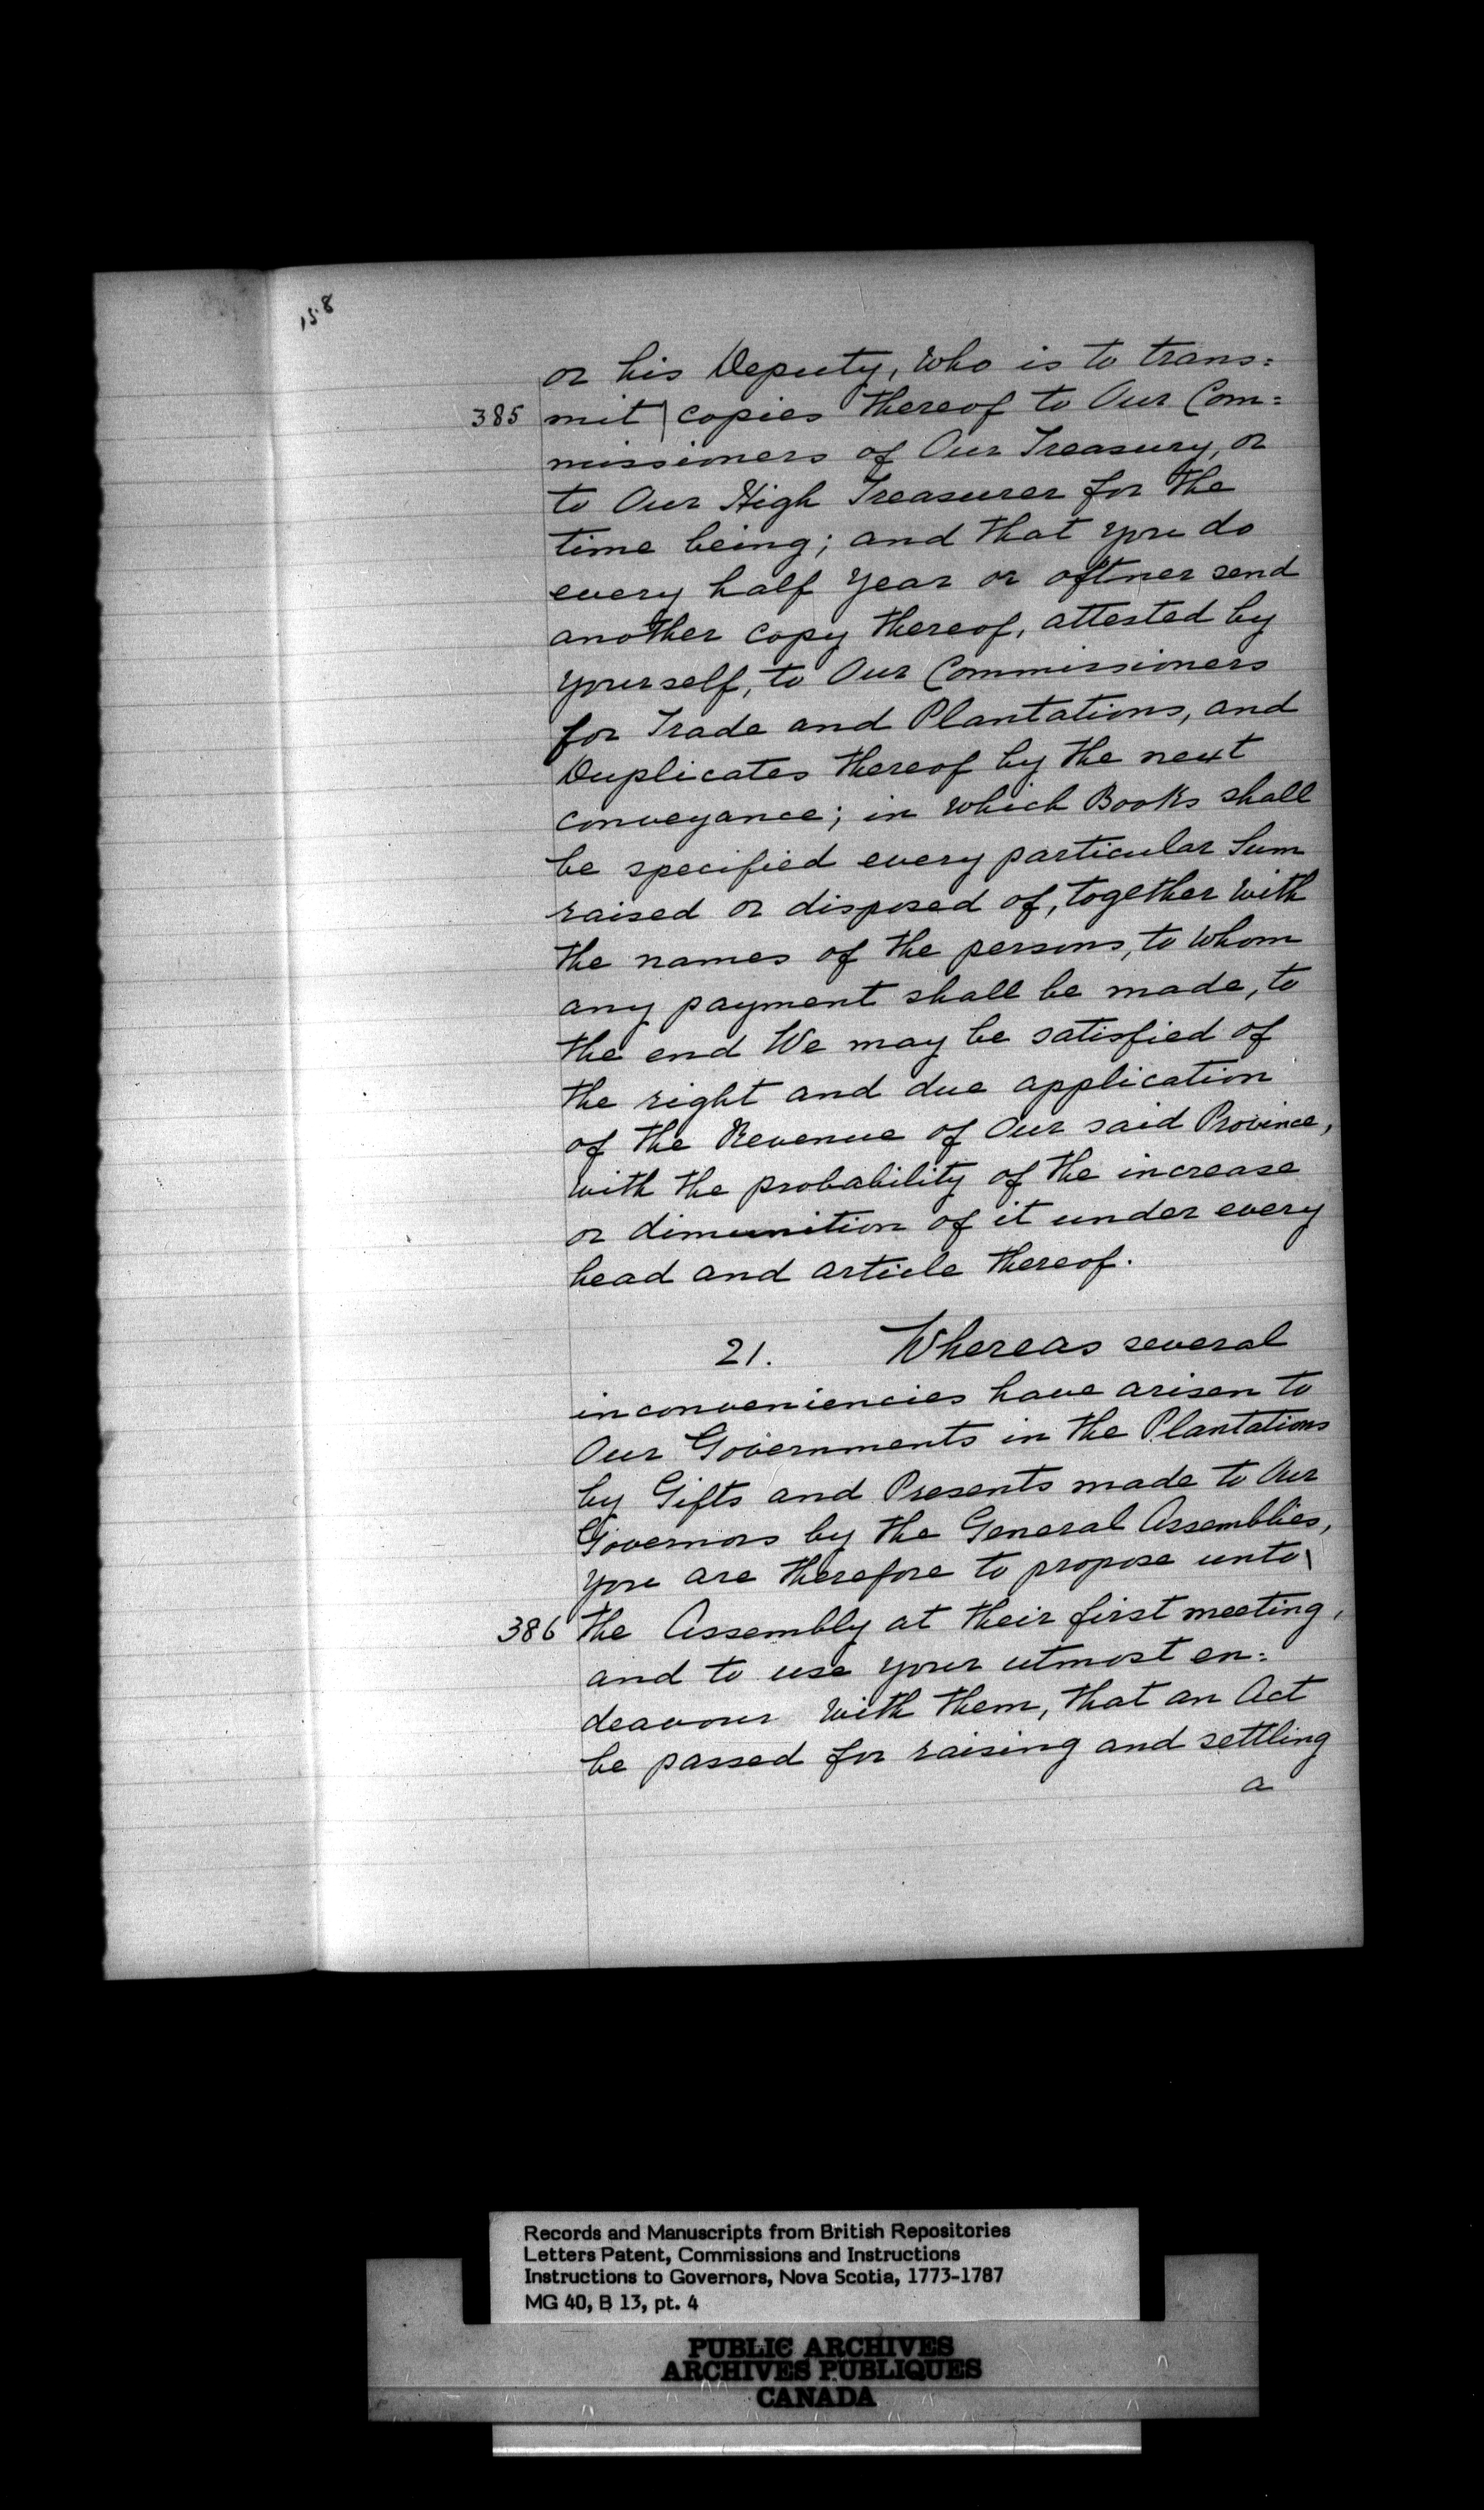 158
or his Deputy, who is to trans=
385 mit | copies thereof to Our Com=
missioners of Our Treasury, or
to Our High Treasurer for the
time being; and that you do
every half year or oftner send
another copy thereof, attested by
yourself, to Our Commissioners
for Trade and Plantations, and
Duplicates thereof by the next
conveyance; in which Books shall
be specified every particular Sum
raised or disposed of, together with
the names of the persons, to whom
any payment shall be made, to
the end We may be satisfied of
the right and due application
of the Revenue of Our said Province,
with the probability of the increase
or dimunition of it under every
head and article thereof.
21. Whereas several
inconveniencies have arisen to
Our Governments in the Plantations
by Gifts and Presents made to Our
Governors by the General Assemblies,
you are therefore to propose unto |
386 the Assembly at their first meeting,
and to use your utmost en=
deavour with them, that an Act
be passed for raising and settling
a
Records and Manuscripts from British Repositories
Letters Patent, Commissions and Instructions
Instructions to Governors, Nova Scotia, 1773-1787
MG 40, B 13, pt. 4
PUBLIC ARCHIVES
ARCHIVES PUBLIQUES
CANADA